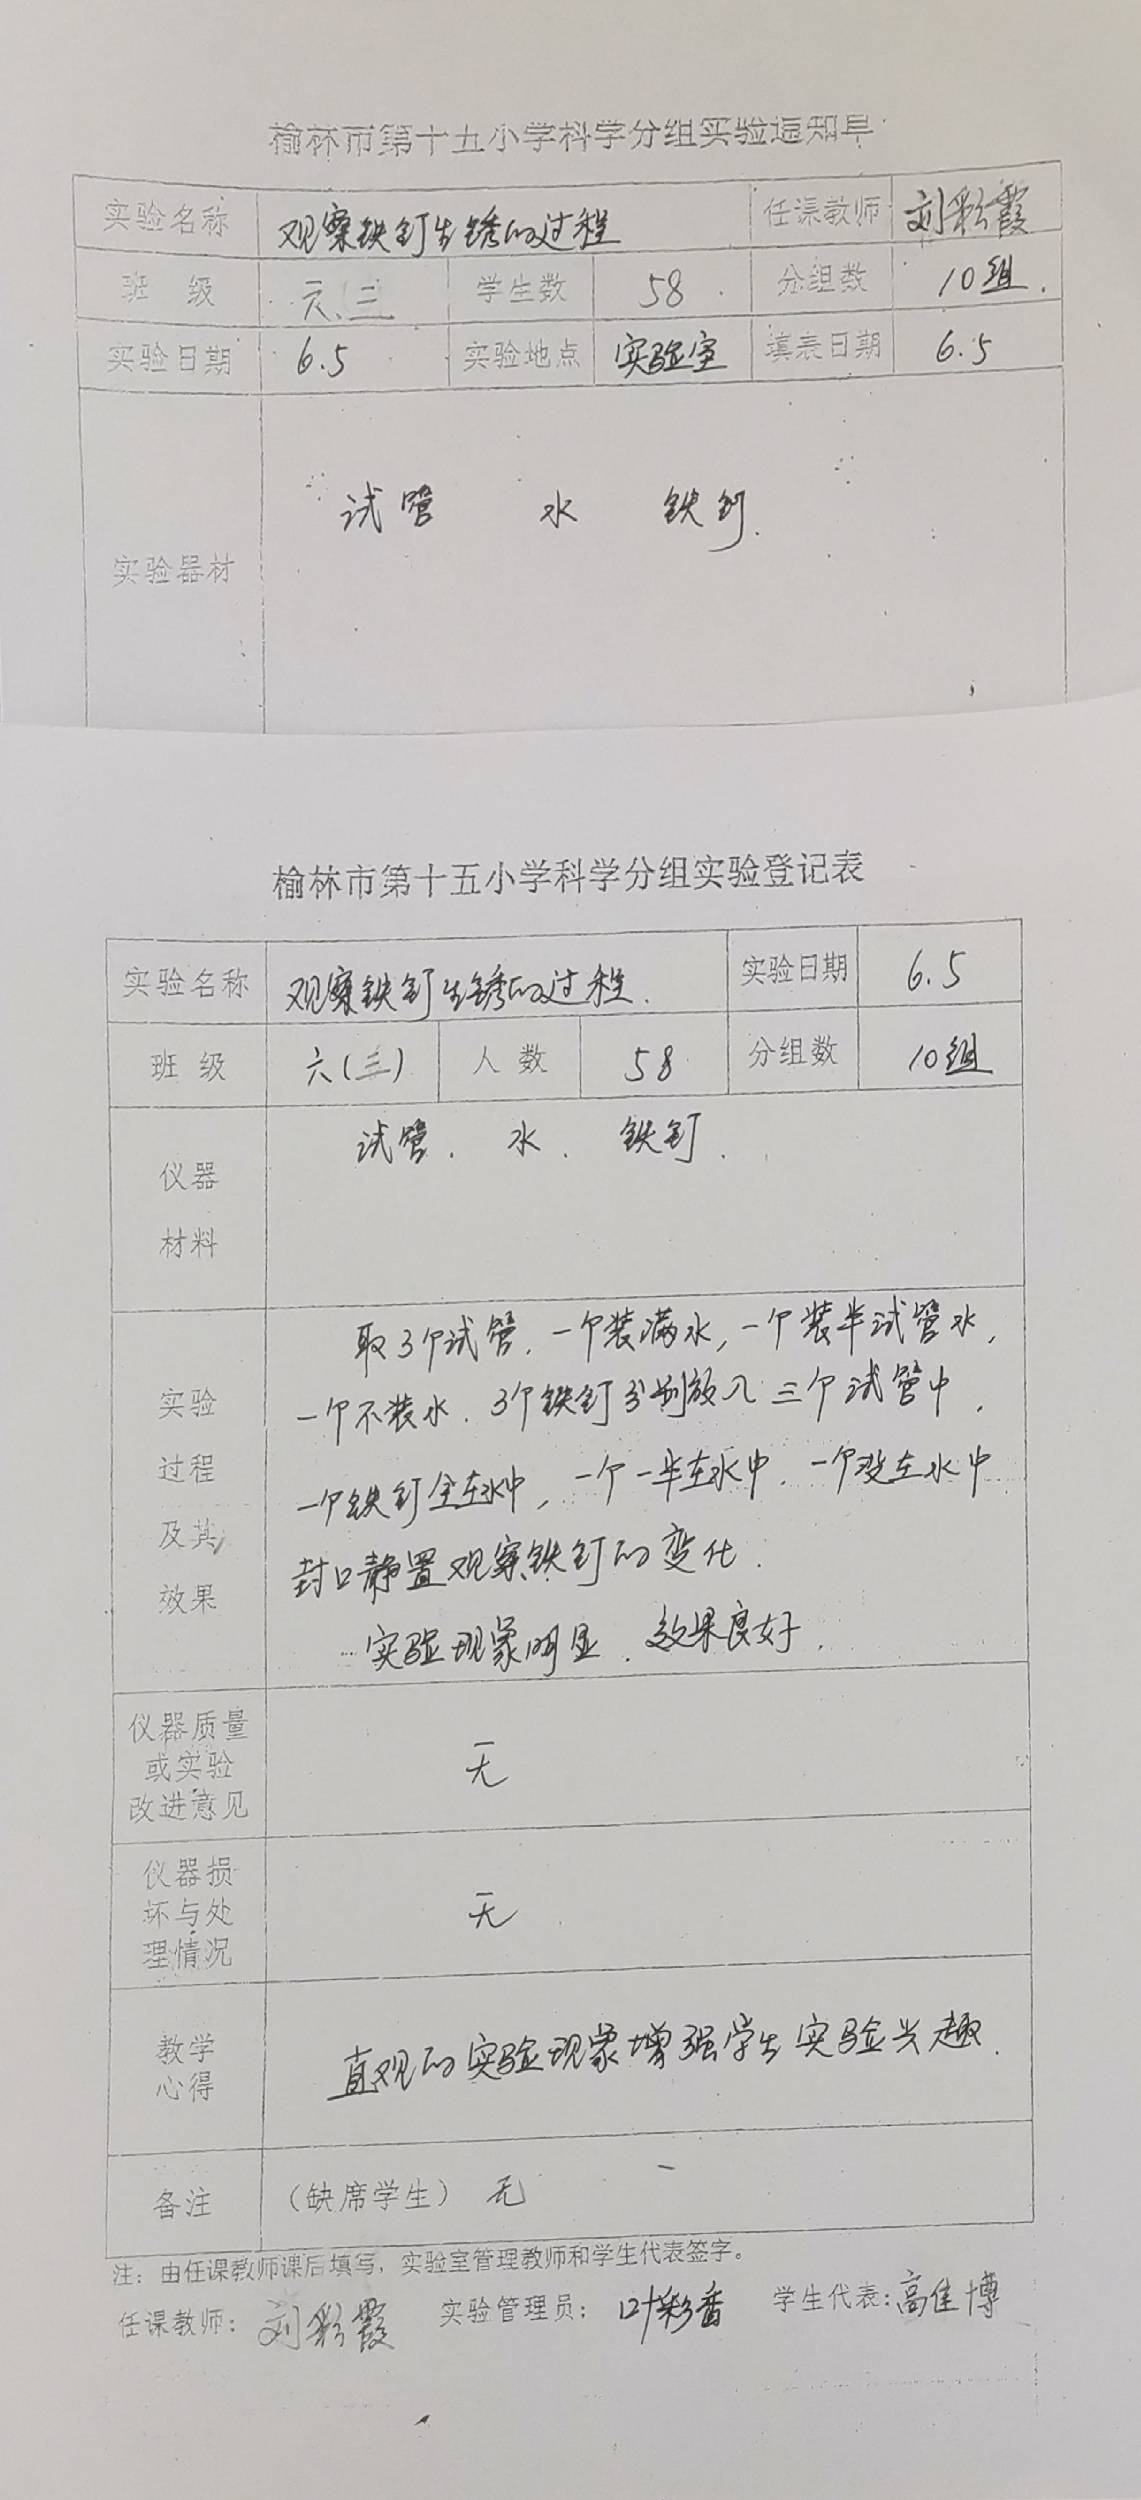 榆林市第十五小学科学分组实验通知单
实验名称 观察铁钉生锈的过程 任课教师 刘彩霞
班 级 六.三 学生数 58 分组数 10组.
实验日期 6.5 实验地点 实验室 填表日期 6.5
实验器材 试管 水 铁钉.
榆林市第十五小学科学分组实验登记表
实验名称 观察铁钉生锈的过程. 实验日期 6.5
班 级 六(三) 人 数 58 分组数 10组
仪器
材料
试管. 水. 铁钉.
实验
过程
及其
效果
取3个试管, 一个装满水, 一个装半试管水,
一个不装水. 3个铁钉分别放入三个试管中,
一个铁钉全在水中, 一个一半在水中. 一个没在水中
封口静置观察铁钉的变化.
实验现象明显. 效果良好.
仪器质量
或实验
改进意见
无
仪器损
坏与处
理情况
无
教学
心得
直观的实验现象增强学生实验兴趣.
备注 （缺席学生） 无
注：由任课教师课后填写，实验室管理教师和学生代表签字。
任课教师：刘彩霞 实验管理员：叶彩香 学生代表：高佳博